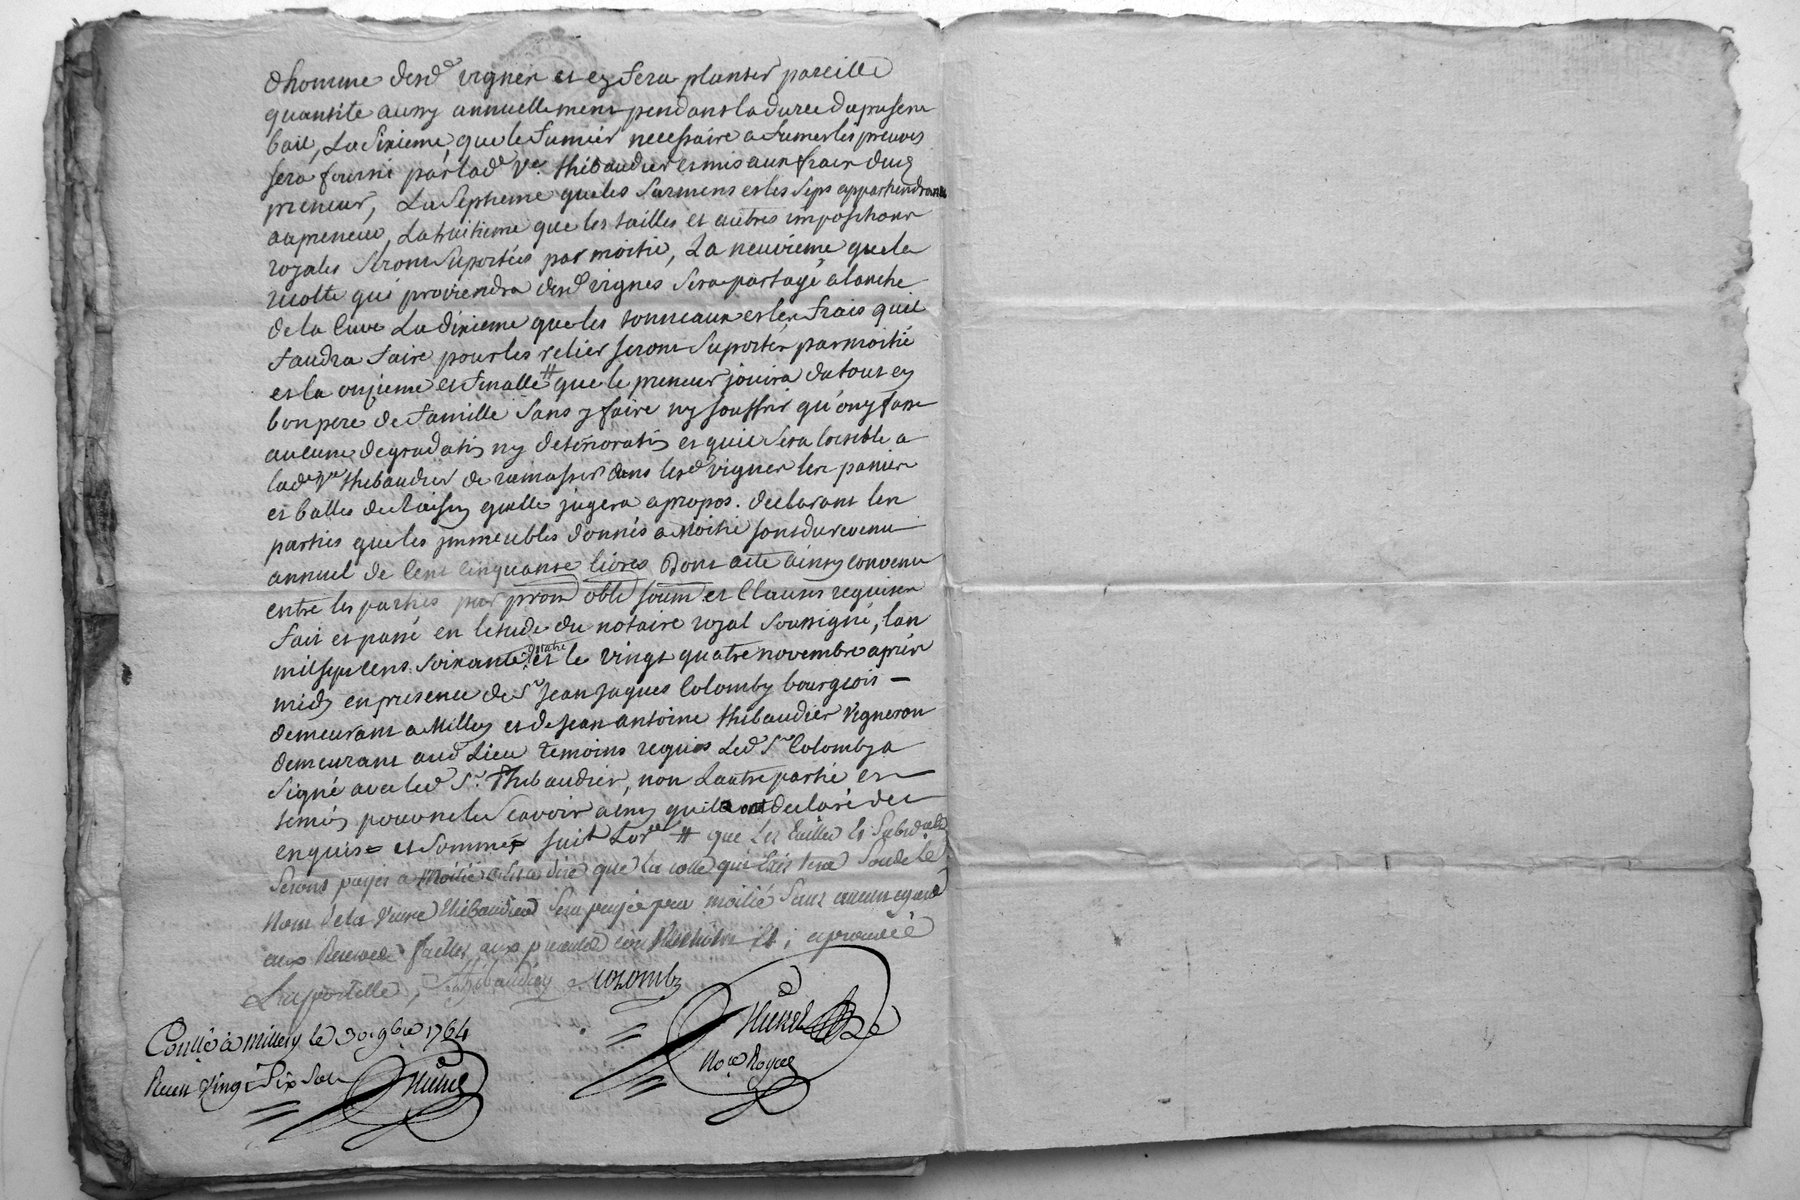 d'homme desd. vignes et en fera planter pareille
quantité aussy annuellement pendant la durée du present
bail, La Sixieme que le fumier necessaire a fumer les preuves
sera fourni par lad. Ve. Thibaudier et mis aux frais dud.
preneur, La Septieme que les Sarmens et les Seps appartiendront
au preneur, La huitieme que les tailles et autres impositions
royales Seront Suportées par moitié, La neuvieme que la
recolte qui proviendra desd. vignes Sera partagé a lanche
de la Cuve La dixieme que les tonneaux et les frais quil
faudra faire pour les relier seront Suportés par moitié
et la onzieme et finalle # que le preneur jouira du tout en
bon pere de famille Sans y faire ny souffrir qu'on y fasse
aucune degradaon ny deterioraon et quil Sera loisible a
lade. Ve. Thibaudier de ramasser dans lesd. vignes les panier
et balles de Raisin quelle jugera apropos. declarant les
parties que les jmmeubles donnés a Moitié sont du revenu
annuel de Cent Cinquante livres Dont acte ainsy convenu
entre les parties par prom obls soum et Clauses requises
fait et passé en letude du notaire royal Soussigné, lan
mil sept cens Soixante quatre et le vingt quatre novembre après
midy en presence de Sr. Jean Jaques Colomby bourgeois –
demeurant a Millery et de Jean antoine Thibaudier Vigneron
demeurant aud. Lieu temoins requis Led. Sr. Colomby a
Signé avec led. Sr. Thibaudier, non Lautre partie et
temoin pour ne le Scavoir ainsy quils ont declaré de ce
enquis = et Sommés suit # que Les tailles
Serons payer a Moitié a dire que la cotte qui Sera Sou le
Nom de la Veuve Thibaudier Sera payée par moitié Sans aucun egard
aux aprouvée
Thibaudier Colomby
Michel
Nore. Royal
Conllé à Millery le 30 9bre 1764
Receu Vingt Six Sols Michel